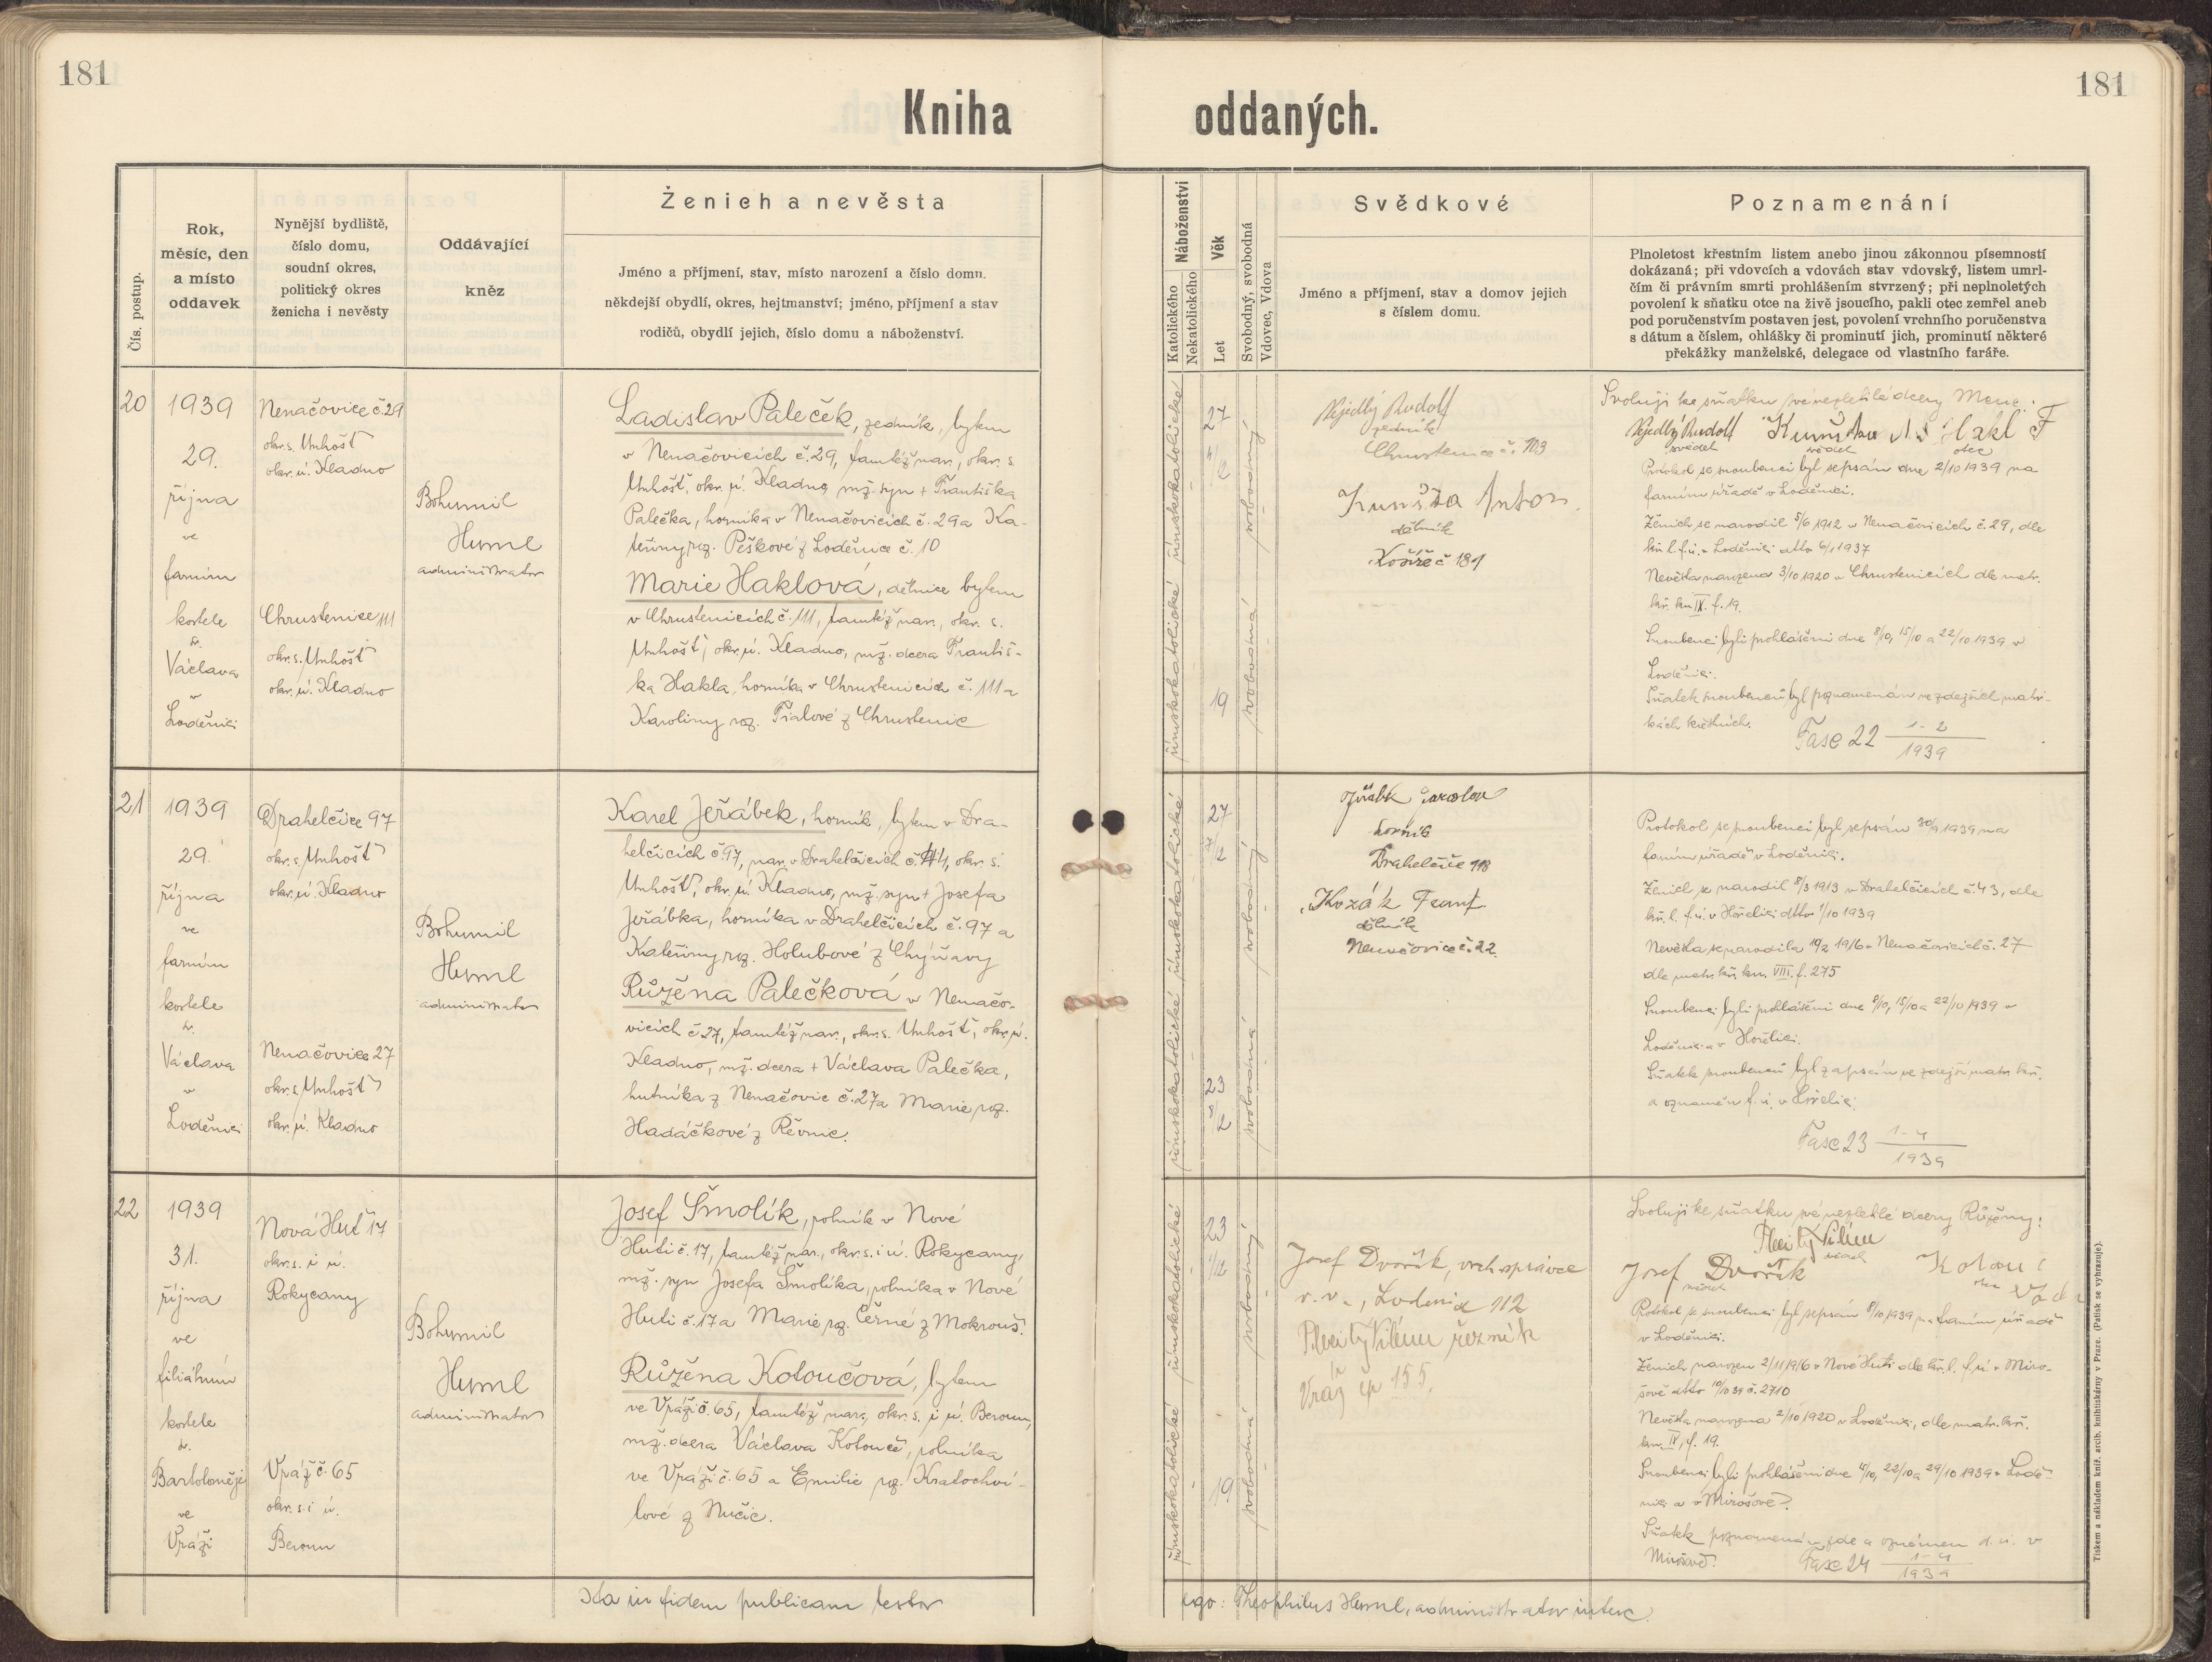 181
181
Kniha oddaných.
Čís. postup.
Rok,
měsíc, den
a místo
oddavek
Nynější bydliště,
číslo domu,
soudní okres,
politický okres
ženicha i nevěsty
Oddávající
kněz
Ženich a nevěsta
Jméno a příjmení, stav, místo narození a číslo domu.
někdejší obydlí, okres, hejtmanství; jméno, příjmení a stav
rodičů, obydlí jejich, číslo domu a náboženství.
Náboženství
Katolického
Nekatolického
Věk
Let
Svobodný, svobodná
Vdovec, Vdova
Svědkové
Jméno a příjmení, stav a domov jejich
s číslem domu.
Poznamenání
Plnoletost křestním listem anebo jinou zákonnou písemností
dokázaná; při vdovcích a vdovách stav vdovský, listem umrl-
čím či právním smrti prohlášením stvrzený; při neplnoletých
povolení k sňatku otce na živě jsoucího, pakli otec zemřel aneb
pod poručenstvím postaven jest, povolení vrchního poručenstva
s dátum a číslem, ohlášky či prominutí jich, prominutí některé
překážky manželské, delegace od vlastního faráře.
20
1939
29.
října
ve
farním
kostele
sv.
Václava
v
Loděnici
Nenačovice č.29
okr.s. Unhošť
okr. ú. Kladno
Chrustenice 111
okr.s. Unhošť
okr. ú. Kladno
Bohumil
Huml
administrator
Ladislav Paleček, zedník, bytem
v Nenačovicích č.29, tamtéž nar., okr. s.
Unhošť, okr. ú. Kladno, mž. syn + Františka
Palečka, horníka v Nenačovicích č. 29 a Ka-
teřiny roz. Peškové z Loděnice č. 10
Marie Haklová, dělnice bytem
v Chrustenicích č. 111, tamtéž nar., okr. s.
Unhošť, okr. ú. Kladno, mž. dcera Františ-
ka Hakla, horníka v Chrustenicích č. 111 a
Karoliny roz. Fialové z Chrustenic
římskokatolické
římskokatolické
27
4/12
19
svobodný
svobodná
Nejedlý Rudolf
zedník
Chrustenice č. 103
Kuništa Anton
dělník
Košíře č 181
Svoluji ke sňatku své nezletilé dcery Marie:
Nejedlý Rudolf Kuništa A. Hakl F
svědek svědek otec
Protokol se snoubenci byl sepsán dne 2/10 1939 na
farním úřadě v Loděnici.
Ženich se narodil 5/6 1912 v Nenačovicích č. 29, dle
kř. l. f. ú. v Loděnici dtto 6/1 1937
Nevěsta narozena 3/10 1920 v Chrustenicích dle matr.
kř. kn. IX. f. 19.
Snoubenci byli prohlášeni dne 8/10, 15/10 a 22/10 1939 v
Loděnici.
Sňatek snoubenců byl poznamenán ve zdejších matri-
kách křestních.
Fasc 22 1-2/1939
21
1939
29.
října
ve
farním
kostele
sv.
Václava
v
Loděnici
Drahelčice 97
okr.s. Unhošť
okr. ú. Kladno
Nenačovice 27
okr.s. Unhošť
okr. ú. Kladno
Bohumil
Huml
administrator
Karel Jeřábek, horník, bytem v Dra-
helčicích č.97, nar. v Drahelčicích č. , okr. s.
Unhošť, okr. ú. Kladno, mž. syn + Josefa
Jeřábka, horníka v Drahelčicích č. 97 a
Kateřiny roz. Holubové z Chýňavy
Růžena Palečková v Nenačo-
vicích č. 27, tamtéž nar., okr. s. Unhošť, okr. ú.
Kladno, mž. dcera + Václava Palečka,
hutníka z Nenačovic č. 27 a Marie roz.
Hadáčkové z Řevnic.
římskokatolické
římskokatolické
27
7/12
23
8/12
svobodný
svobodná
Jeřábek Jaroslav
horník
Drahelčice 118
Kozák Frant.
dělník
Nenačovice č. 22.
Protokol se snoubenci byl sepsán 30/9 1939 na
farním úřadě v Loděnici.
Ženich se narodil 8/3 1913 v Drahelčicích č. 43, dle
kř. l. f. ú. v Hořelici dtto 1/10 1939
Nevěsta se narodila 19/2 1916 v Nenačovicích č. 27
dle matr. kř. kn. VIII. f. 275
Snoubenci byli prohlášeni dne 8/10, 15/10 a 22/10 1939 v
Loděnici a v Hořelici.
Sňatek snoubenců byl zapsán ve zdejší matr. kř.
a oznámen f. ú. v Hořelici.
Fasc 23 1-4/1939
22
1939
31.
října
ve
filiálním
kostele
sv.
Bartoloměje
ve
Vráži
Nová Huť 17
okr.s. i ú.
Rokycany
Vráž č. 65
okr. s. i ú.
Beroun
Bohumil
Huml
administrator
Josef Šmolík, rolník v Nové
Huti č. 17, tamtéž nar., okr. s. i ú. Rokycany,
mž. syn Josefa Šmolíka, rolníka v Nové
Huti č. 17 a Marie roz. Černé z Mokrouš.
Růžena Kotoučová, bytem
ve Vráži č. 65, tamtéž nar., okr. s. i ú. Beroun,
mž. dcera Václava Kotouče, rolníka
ve Vráži č. 65 a Emilie roz. Kratochví-
lové z Nučic.
římskokatolické
římskokatolické
23
1/12
19
svobodný
svobodná
Josef Dvořák, vrch. správce
v. v., Loděnice 112
Plecitý Vilém řezník
Vráž čp 155.
Svoluji ke sňatku své nezletilé dcery Růženy:
Plecitý Vilém
svědek
Josef Dvořák
svědek
Kotouč
otec
Protokol se snoubenci byl sepsán 8/10 1939 na farním úřadě
v Loděnici.
Ženich narozen 2/11 1916 v Nové Huti dle kř. l. f. ú. v Miro-
šově dtto 10/10 39 č. 2710
Nevěsta narozena 2/10 1920 v Loděnici, dle matr. kř.
kn. IX, f. 19.
Snoubenci byli prohlášeni dne 22/10 a 29/10 1939 v Lodě-
nici a v Mirošově.
Sňatek poznamenán zde a oznámen d. ú. v
Mirošově.
Fasc 24 1-4/1939
Ita in fidem publicam testor
ego: Theophilus Huml, administrator interc.
Tiskem a nákladem kníž. arcib. knihtiskárny v Praze. (Patisk se vyhrazuje).